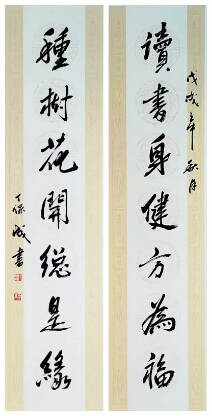 讀書身健方為福
戊戌年秋月
種樹花開總是緣
丁保成書